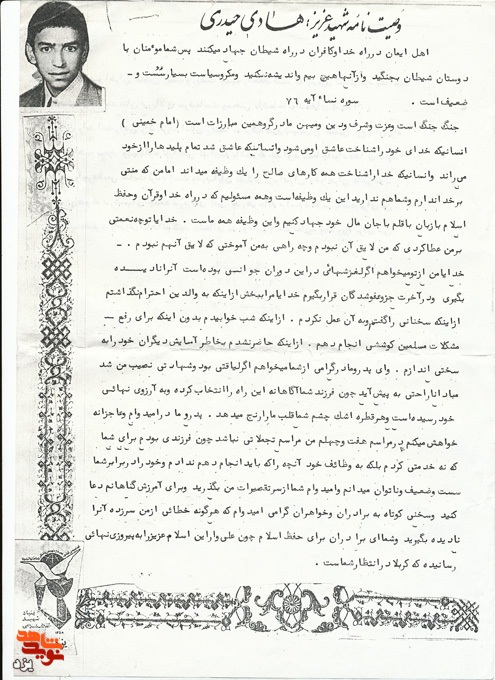 وصیت نامه شهید عزیز: هادی حیدری
اهل ایمان در راه خدا و کافران در راه شیطان جهاد میکنند پس شما مؤمنان با
دوستان شیطان بجنگید و از آنها هیچ بیم و اندیشه نکنید و مکر و سیاست بسیار سست و -
ضعیف است . سوره نساء آیه ۷۶
جنگ جنگ است و عزت و شرف و دین و میهن ما در گرو همین مبارزات است (امام خمینی )
انسانیکه خدای خود را شناخت عاشق او می شود و انسانیکه عاشق شد تمام پلیدها را از خود
می راند و انسانیکه خدا را شناخت همه کارهای صالح را یک وظیفه میداند اما من که منتی
بر خدا ندارم و شما هم ندارید این یک وظیفه است و همه مسئولیم که در راه خدا و قرآن و حفظ
اسلام با زبان با قلم با جان مال خود جهاد کنیم و این وظیفه همه ماست . خدایا تو چه نعمتی
بر من عطا کردی که من لایق آن نبودم و چه راهی به من آموختی که لایق آنهم نبودم . -
خدایا من از تو میخواهم اگر لغزشهائی در این دوران جوانسی بوده است آنرا نادیسده
بگیری و در آخرت جزو عفو شدگان قرار بگیرم خدایا مرا ببخش از اینکه به والدین احترام نگذاشتم
از اینکه سخنانی را گفتم و به آن عمل نکردم . از اینکه شب خوابیدم بدون اینکه برای رفع -
مشکلات مسلمین کوششی انجام دهم . از اینکه حاضر نشدم بخاطر آسایش دیگران خود را به
سختی اندازم . وای پدر و مادر گرامی از شما میخواهم اگر لیاقتی بود و شهادتی نصیب من شد
مبادا ناراحتی به پیش آید چون فرزند شما آگاهانه این راه را انتخاب کرده و به آرزوی نهائی
خود رسیده است و هر قطره اشک چشم شما قلب ما را رنج میدهد . پدر و مادر امیدوام و عاجزانه
خواهش میکنم در مراسم هفت و چهلم من مراسم تجملاتی نباشد چون فرزندی بودم برای شما
که نه خدمتی کردم بلکه به وظائف خود آنچه را که باید انجام دهم ندادم و خود را در برابر شما
سست وضعیف و ناتوان میدانم و امیدوام شما از سر تقصیرات من بگذرید و برای آمرزش گناهانم دعا
کنید و سخنی کوتاه به برادران و خواهران گرامی امیدوام که هرگونه خطائی از من سرزده آنرا
نادیده بگیرید و شما ای برادران برای حفظ اسلام چون علی وار این اسلام عزیز را به پیروزی نهائی
رسانیده که کربلا در انتظار شماست .
بنیاد
شهید
نوید شاهد
یزد